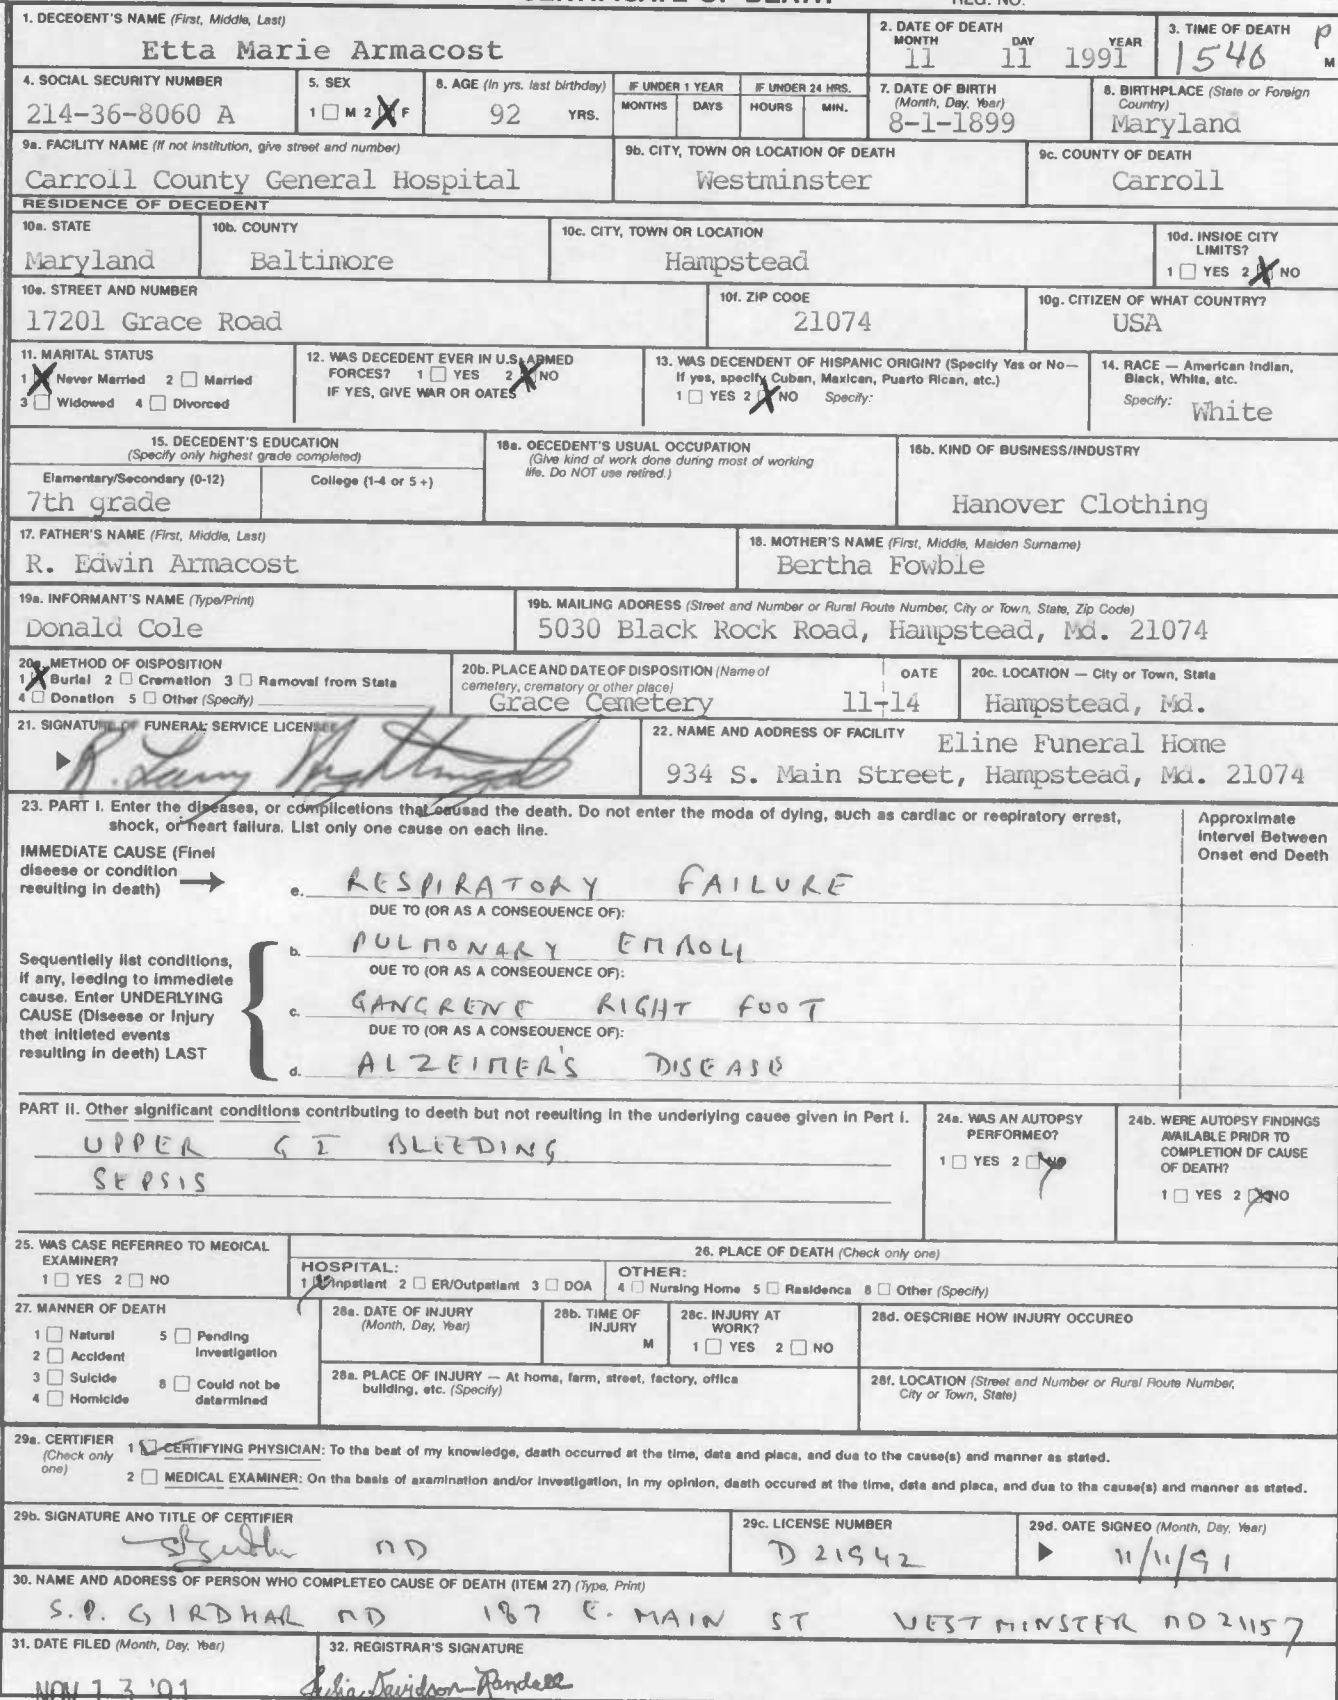 1. DECEDENT'S NAME (First, Middle, Last)
Etta Marie Armacost
2. DATE OF DEATH
MONTH DAY YEAR
11 11 1991
3. TIME OF DEATH
1540 P M
4. SOCIAL SECURITY NUMBER
214-36-8060 A
5. SEX
1 M 2 X F
6. AGE (In yrs. last birthday)
92 YRS.
IF UNDER 1 YEAR
MONTHS DAYS
IF UNDER 24 HRS.
HOURS MIN.
7. DATE OF BIRTH
(Month, Day, Year)
8-1-1899
8. BIRTHPLACE (State or Foreign
Country)
Maryland
9a. FACILITY NAME (If not institution, give street and number)
Carroll County General Hospital
9b. CITY, TOWN OR LOCATION OF DEATH
Westminster
9c. COUNTY OF DEATH
Carroll
RESIDENCE OF DECEDENT
10a. STATE
Maryland
10b. COUNTY
Baltimore
10c. CITY, TOWN OR LOCATION
Hampstead
10d. INSIDE CITY
LIMITS?
1 YES 2 X NO
10e. STREET AND NUMBER
17201 Grace Road
10f. ZIP CODE
21074
10g. CITIZEN OF WHAT COUNTRY?
USA
11. MARITAL STATUS
1 X Never Married 2 Married
3 Widowed 4 Divorced
12. WAS DECEDENT EVER IN U.S. ARMED
FORCES? 1 YES 2 X NO
IF YES, GIVE WAR OR DATES
13. WAS DECENDENT OF HISPANIC ORIGIN? (Specify Yes or No—
If yes, specify Cuban, Mexican, Puerto Rican, etc.)
1 YES 2 X NO Specify:
14. RACE — American Indian,
Black, White, etc.
Specify: White
15. DECEDENT'S EDUCATION
(Specify only highest grade completed)
Elementary/Secondary (0-12) College (1-4 or 5+)
7th grade
16a. DECEDENT'S USUAL OCCUPATION
(Give kind of work done during most of working
life. Do NOT use retired.)
16b. KIND OF BUSINESS/INDUSTRY
Hanover Clothing
17. FATHER'S NAME (First, Middle, Last)
R. Edwin Armacost
18. MOTHER'S NAME (First, Middle, Maiden Surname)
Bertha Fowble
19a. INFORMANT'S NAME (Type/Print)
Donald Cole
19b. MAILING ADDRESS (Street and Number or Rural Route Number, City or Town, State, Zip Code)
5030 Black Rock Road, Hampstead, Md. 21074
20a. METHOD OF DISPOSITION
1 X Burial 2 Cremation 3 Removal from State
4 Donation 5 Other (Specify)
20b. PLACE AND DATE OF DISPOSITION (Name of
cemetery, crematory or other place)
Grace Cemetery
DATE
11-14
20c. LOCATION — City or Town, State
Hampstead, Md.
21. SIGNATURE OF FUNERAL SERVICE LICENSEE
R. Larry Nightingale
22. NAME AND ADDRESS OF FACILITY
Eline Funeral Home
934 S. Main Street, Hampstead, Md. 21074
23. PART I. Enter the diseases, or complications that caused the death. Do not enter the mode of dying, such as cardiac or respiratory arrest,
shock, or heart failure. List only one cause on each line.
Approximate
Interval Between
Onset and Death
IMMEDIATE CAUSE (Final
disease or condition
resulting in death)
a. RESPIRATORY FAILURE
DUE TO (OR AS A CONSEQUENCE OF):
Sequentially list conditions,
if any, leading to immediate
cause. Enter UNDERLYING
CAUSE (Disease or injury
that initiated events
resulting in death) LAST
b. PULMONARY EMBOLI
DUE TO (OR AS A CONSEQUENCE OF):
c. GANGRENE RIGHT FOOT
DUE TO (OR AS A CONSEQUENCE OF):
d. ALZEIMER'S DISEASE
PART II. Other significant conditions contributing to death but not resulting in the underlying cause given in Part I.
UPPER GI BLEEDING
SEPSIS
24a. WAS AN AUTOPSY
PERFORMED?
1 YES 2 NO
24b. WERE AUTOPSY FINDINGS
AVAILABLE PRIOR TO
COMPLETION OF CAUSE
OF DEATH?
1 YES 2 X NO
25. WAS CASE REFERRED TO MEDICAL
EXAMINER?
1 YES 2 NO
26. PLACE OF DEATH (Check only one)
HOSPITAL:
1 Inpatient 2 ER/Outpatient 3 DOA
OTHER:
4 Nursing Home 5 Residence 6 Other (Specify)
27. MANNER OF DEATH
1 Natural 5 Pending
Investigation
2 Accident
3 Suicide 6 Could not be
determined
4 Homicide
28a. DATE OF INJURY
(Month, Day, Year)
28b. TIME OF
INJURY
M
28c. INJURY AT
WORK?
1 YES 2 NO
28d. DESCRIBE HOW INJURY OCCURED
28e. PLACE OF INJURY — At home, farm, street, factory, office
building, etc. (Specify)
28f. LOCATION (Street and Number or Rural Route Number,
City or Town, State)
29a. CERTIFIER
(Check only
one)
1 CERTIFYING PHYSICIAN: To the best of my knowledge, death occurred at the time, date and place, and due to the cause(s) and manner as stated.
2 MEDICAL EXAMINER: On the basis of examination and/or investigation, in my opinion, death occured at the time, date and place, and due to the cause(s) and manner as stated.
29b. SIGNATURE AND TITLE OF CERTIFIER
MD
29c. LICENSE NUMBER
D 21942
29d. DATE SIGNED (Month, Day, Year)
11/11/91
30. NAME AND ADDRESS OF PERSON WHO COMPLETED CAUSE OF DEATH (ITEM 27) (Type, Print)
S.P. GIRDHAR MD 187 E. MAIN ST WESTMINSTER MD 21157
31. DATE FILED (Month, Day, Year)
NOV 13 '91
32. REGISTRAR'S SIGNATURE
Julia Davidson-Randall